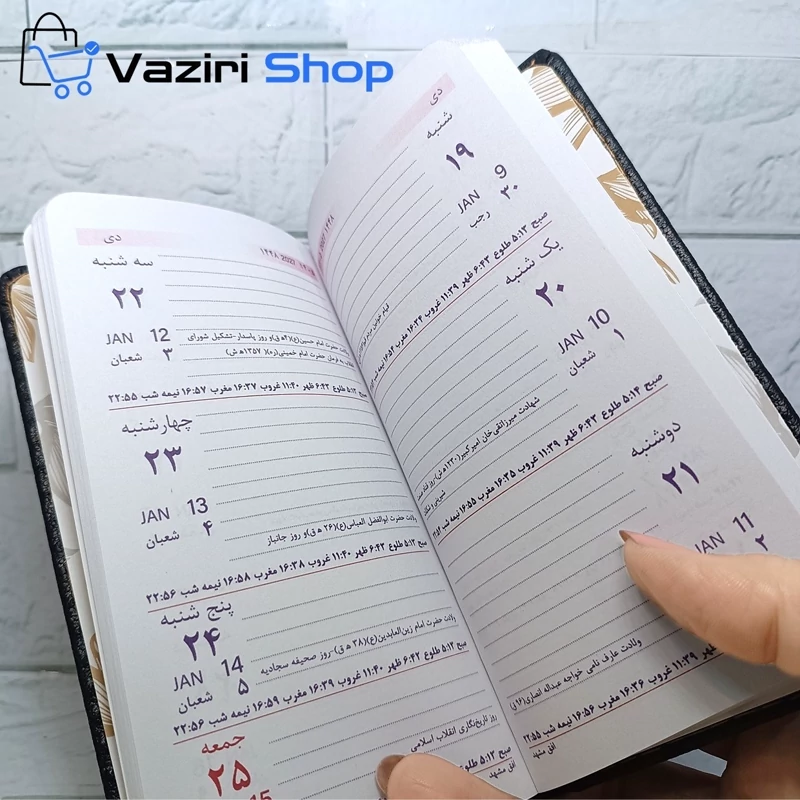 Vaziri Shop
دی
شنبه
۱۹
9 JAN
۳۰ رجب
صبح ۵:۱۳ طلوع ۶:۴۳ ظهر ۱۱:۳۹ غروب ۱۶:۳۴ مغرب
یک شنبه
۲۰
10 JAN
۱ شعبان
شهادت میرزاتقی‌خان امیرکبیر(۱۲۳۰ه‌ ش)
صبح ۵:۱۴ طلوع ۶:۴۳ ظهر ۱۱:۳۹ غروب ۱۶:۳۵ مغرب ۱۶:۵۵ نیمه شب
دوشنبه
۲۱
11 JAN
۲
ولادت عارف نامی خواجه عبداله انصاری
ظهر ۱۱:۳۹ غروب ۱۶:۳۶ مغرب ۱۶:۵۶ نیمه شب ۲۲:۵۵
افق مشهد
دی
۱۴۴۸ 2027
سه شنبه
۲۲
12 JAN
۳ شعبان
حضرت امام حسین(ع)(۴ه ق)و روز پاسدار-تشکیل شورای
به فرمان حضرت امام خمینی(ره)(۱۳۵۷ه ش)
صبح ۵:۱۳ طلوع ۶:۴۳ ظهر ۱۱:۴۰ غروب ۱۶:۳۷ مغرب ۱۶:۵۷ نیمه شب ۲۲:۵۵
چهارشنبه
۲۳
13 JAN
۴ شعبان
ولادت حضرت ابوالفضل العباس(ع)(۲۶ ه ق)و روز جانباز
صبح ۵:۱۳ طلوع ۶:۴۳ ظهر ۱۱:۴۰ غروب ۱۶:۳۸ مغرب ۱۶:۵۸ نیمه شب ۲۲:۵۶
پنج شنبه
۲۴
14 JAN
۵ شعبان
ولادت حضرت امام زین‌العابدین(ع)(۳۸ ه ق)-روز صحیفه سجادیه
صبح ۵:۱۳ طلوع ۶:۴۲ ظهر ۱۱:۴۰ غروب ۱۶:۳۹ مغرب ۱۶:۵۹ نیمه شب ۲۲:۵۶
جمعه
۲۵
15
روز تاریخ‌نگاری انقلاب اسلامی
صبح ۵:۱۳ طلوع
افق مشهد